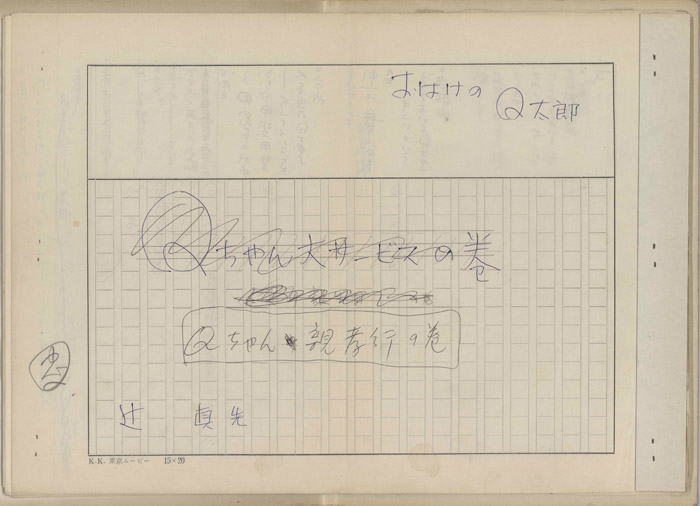 おはけの
Q太郎
Qちゃん大サービスの巻
Qちゃん親孝行の巻
辻 真先
K.K. 東京ムービー 15×20